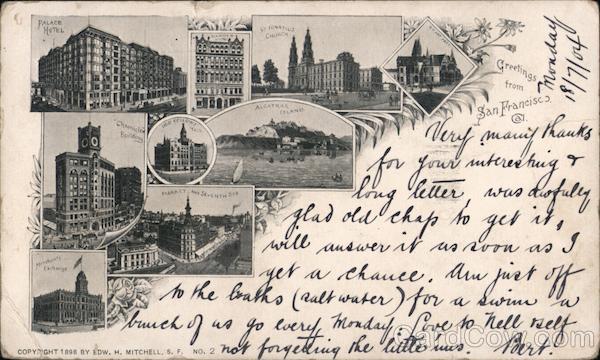 PALACE
HOTEL
ST. IGNATIUS
CHURCH
Greetings
from
San Francisco
Cal.
Monday
18/7/04
Chronicle
Building
ALCATRAZ
ISLAND
MARKET AND SEVENTH STS
Merchants
Exchange
Very many thanks
for your interesting &
long letter, was awfully
glad old chap to get it,
will answer it as soon as I
get a chance. Am just off
to the baths (salt water) for a swim - a
bunch of us go every Monday. Love to Nell & self
not forgetting the little ones.
COPYRIGHT 1898 BY EDW. H. MITCHELL, S. F. NO. 2
CardCow.com